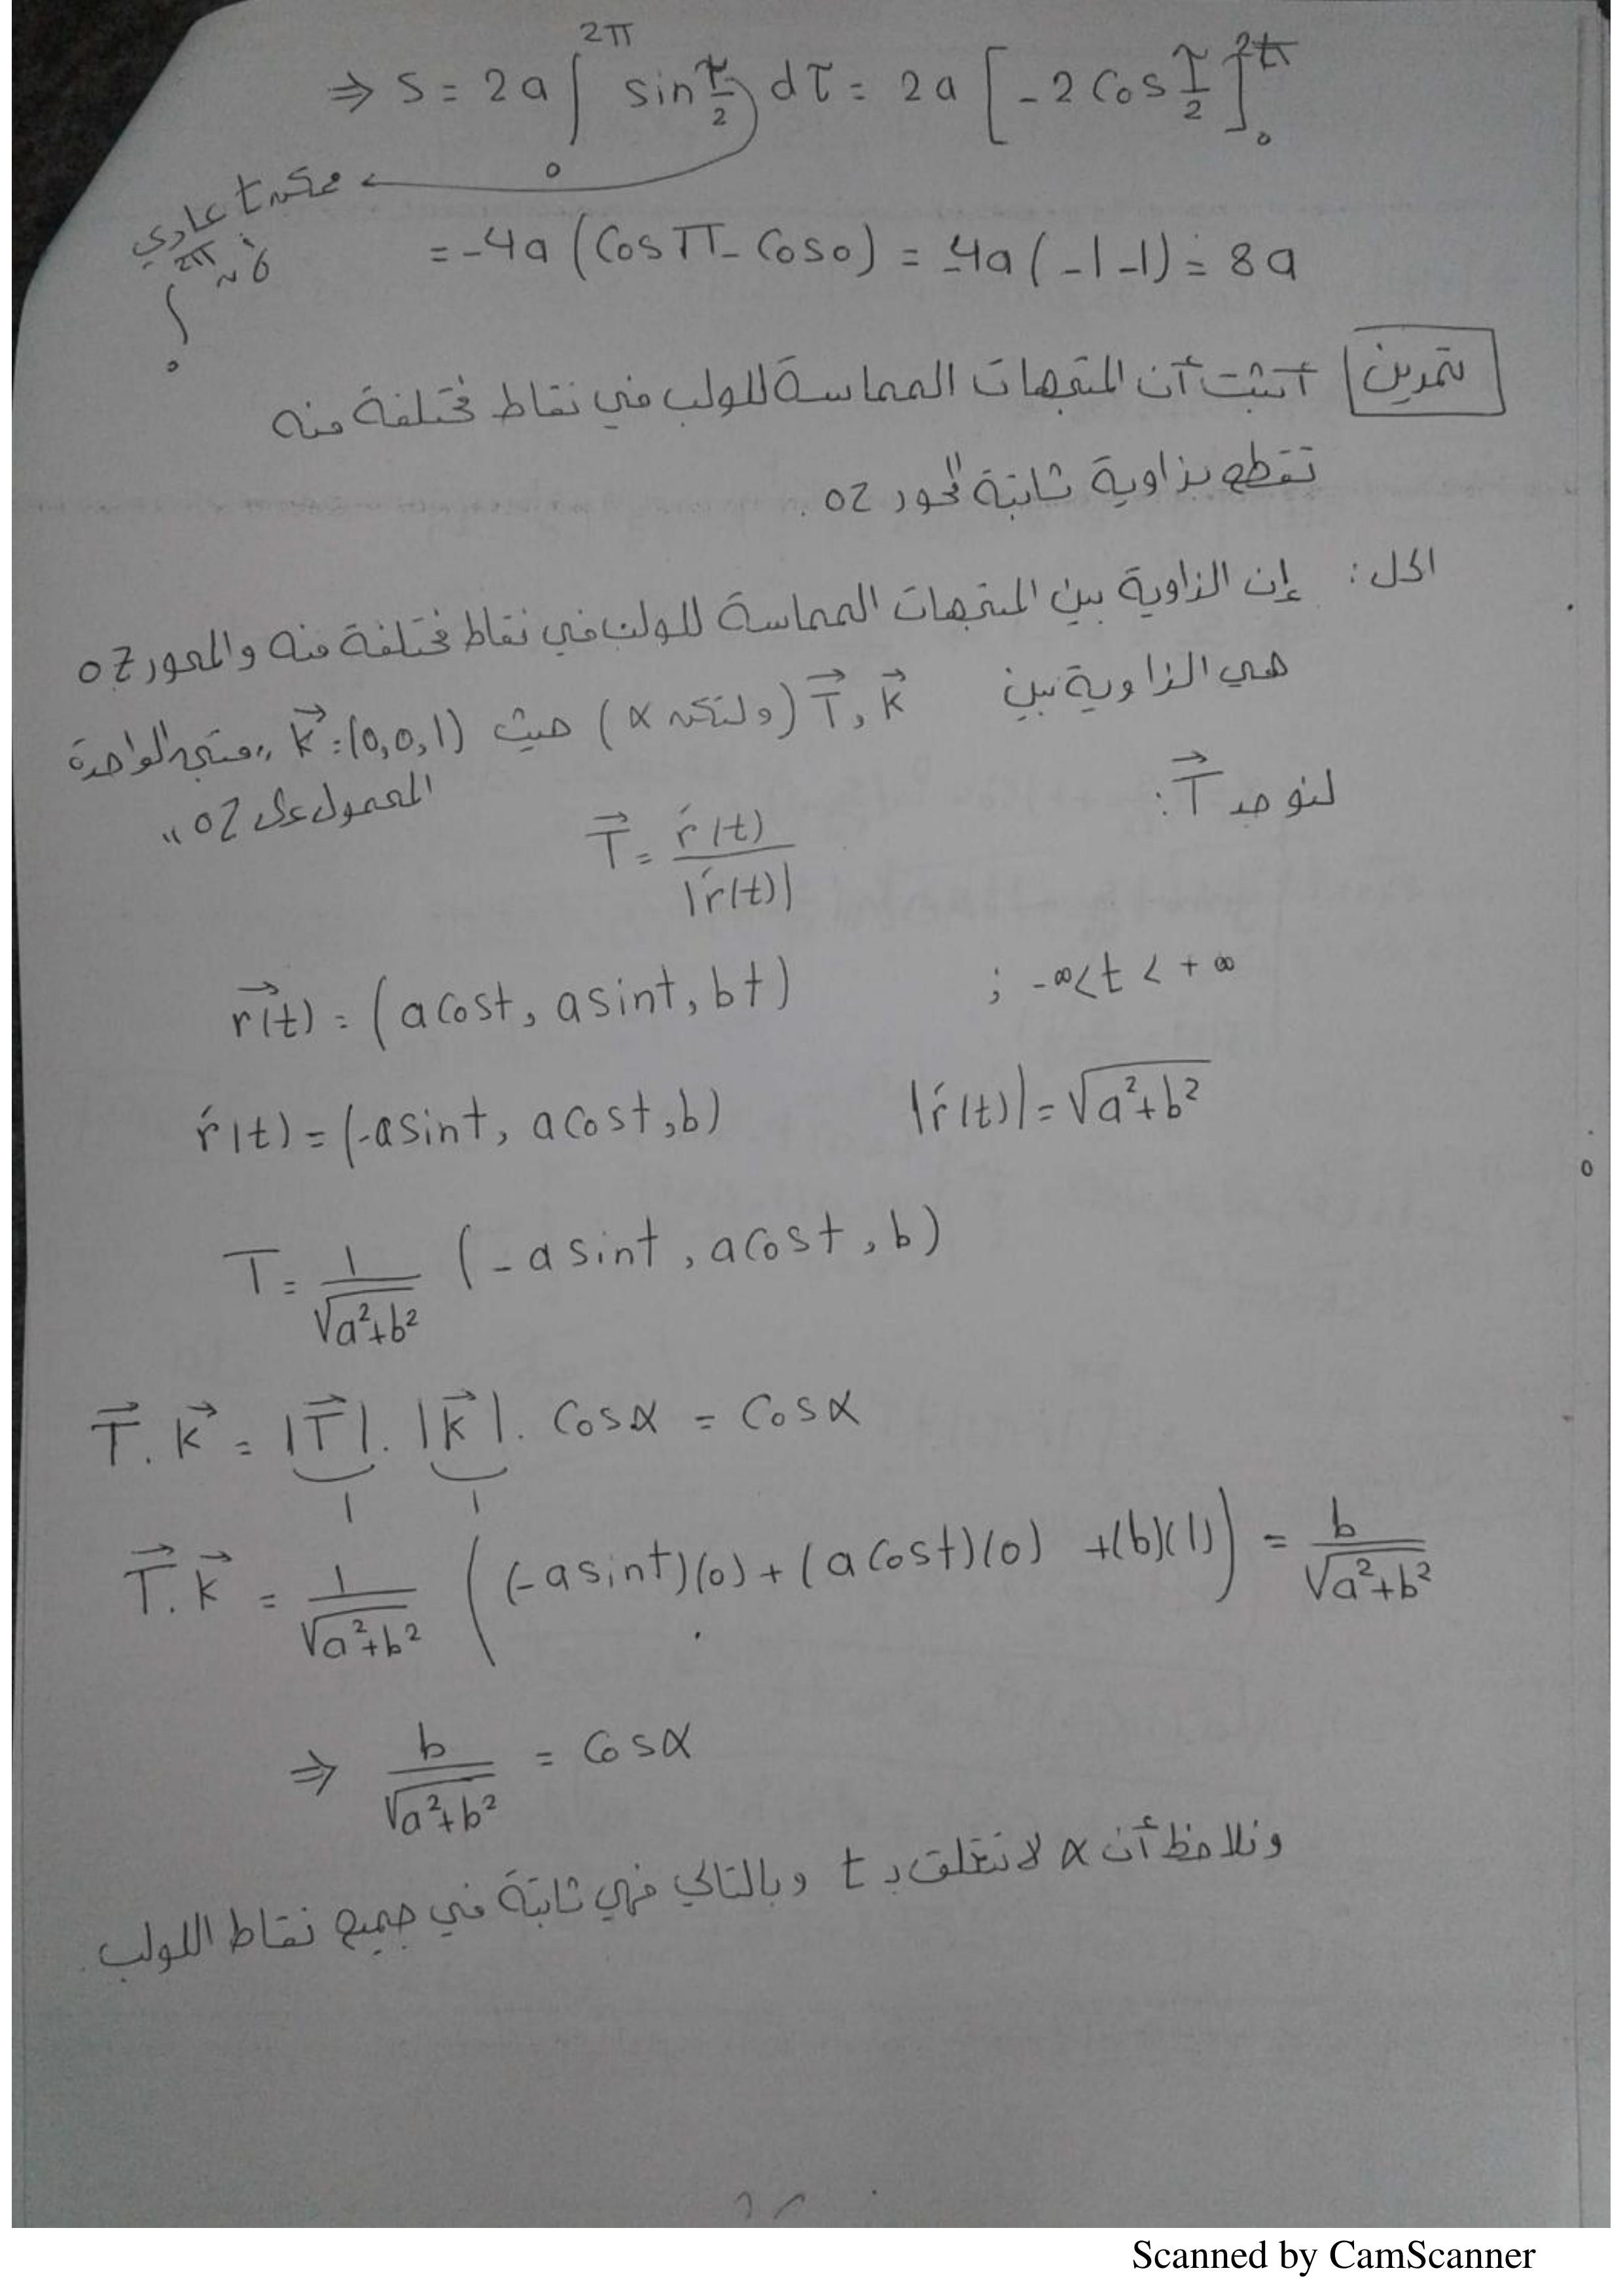 ⇒ s = 2a ∫₀^{2π} sin τ/2 dτ = 2a [-2 cos τ/2]₀^{2π}
ممكن t عادي
لأن ∫₀^{2π}
= -4a (cos π - cos 0) = -4a (-1-1) = 8a
تمرين أثبت أن المتجهات المماسة للولب في نقاط مختلفة منه
تقطع بزاوية ثابتة المحور oz .
الحل : إن الزاوية بين المتجهات المماسة للولب في نقاط مختلفة منه والمحور oz
هي الزاوية بين T⃗, k⃗ (ولتكن α) حيث k⃗ = (0,0,1) "متجه الواحدة
المحمول على oz"
لنوجد T⃗ :
T⃗ = ŕ(t) / |ŕ(t)|
r⃗(t) = (a cos t, a sin t, bt) ; -∞ < t < +∞
ŕ(t) = (-a sin t, a cos t, b) |ŕ(t)| = √(a²+b²)
T = 1/√(a²+b²) (-a sin t, a cos t, b)
T⃗ . k⃗ = |T⃗| . |k⃗| . cos α = cos α
1 1
T⃗ . k⃗ = 1/√(a²+b²) ((-a sin t)(0) + (a cos t)(0) + (b)(1)) = b/√(a²+b²)
⇒ b/√(a²+b²) = cos α
ونلاحظ أن α لا تتعلق بـ t وبالتالي فهي ثابتة في جميع نقاط اللولب .
Scanned by CamScanner